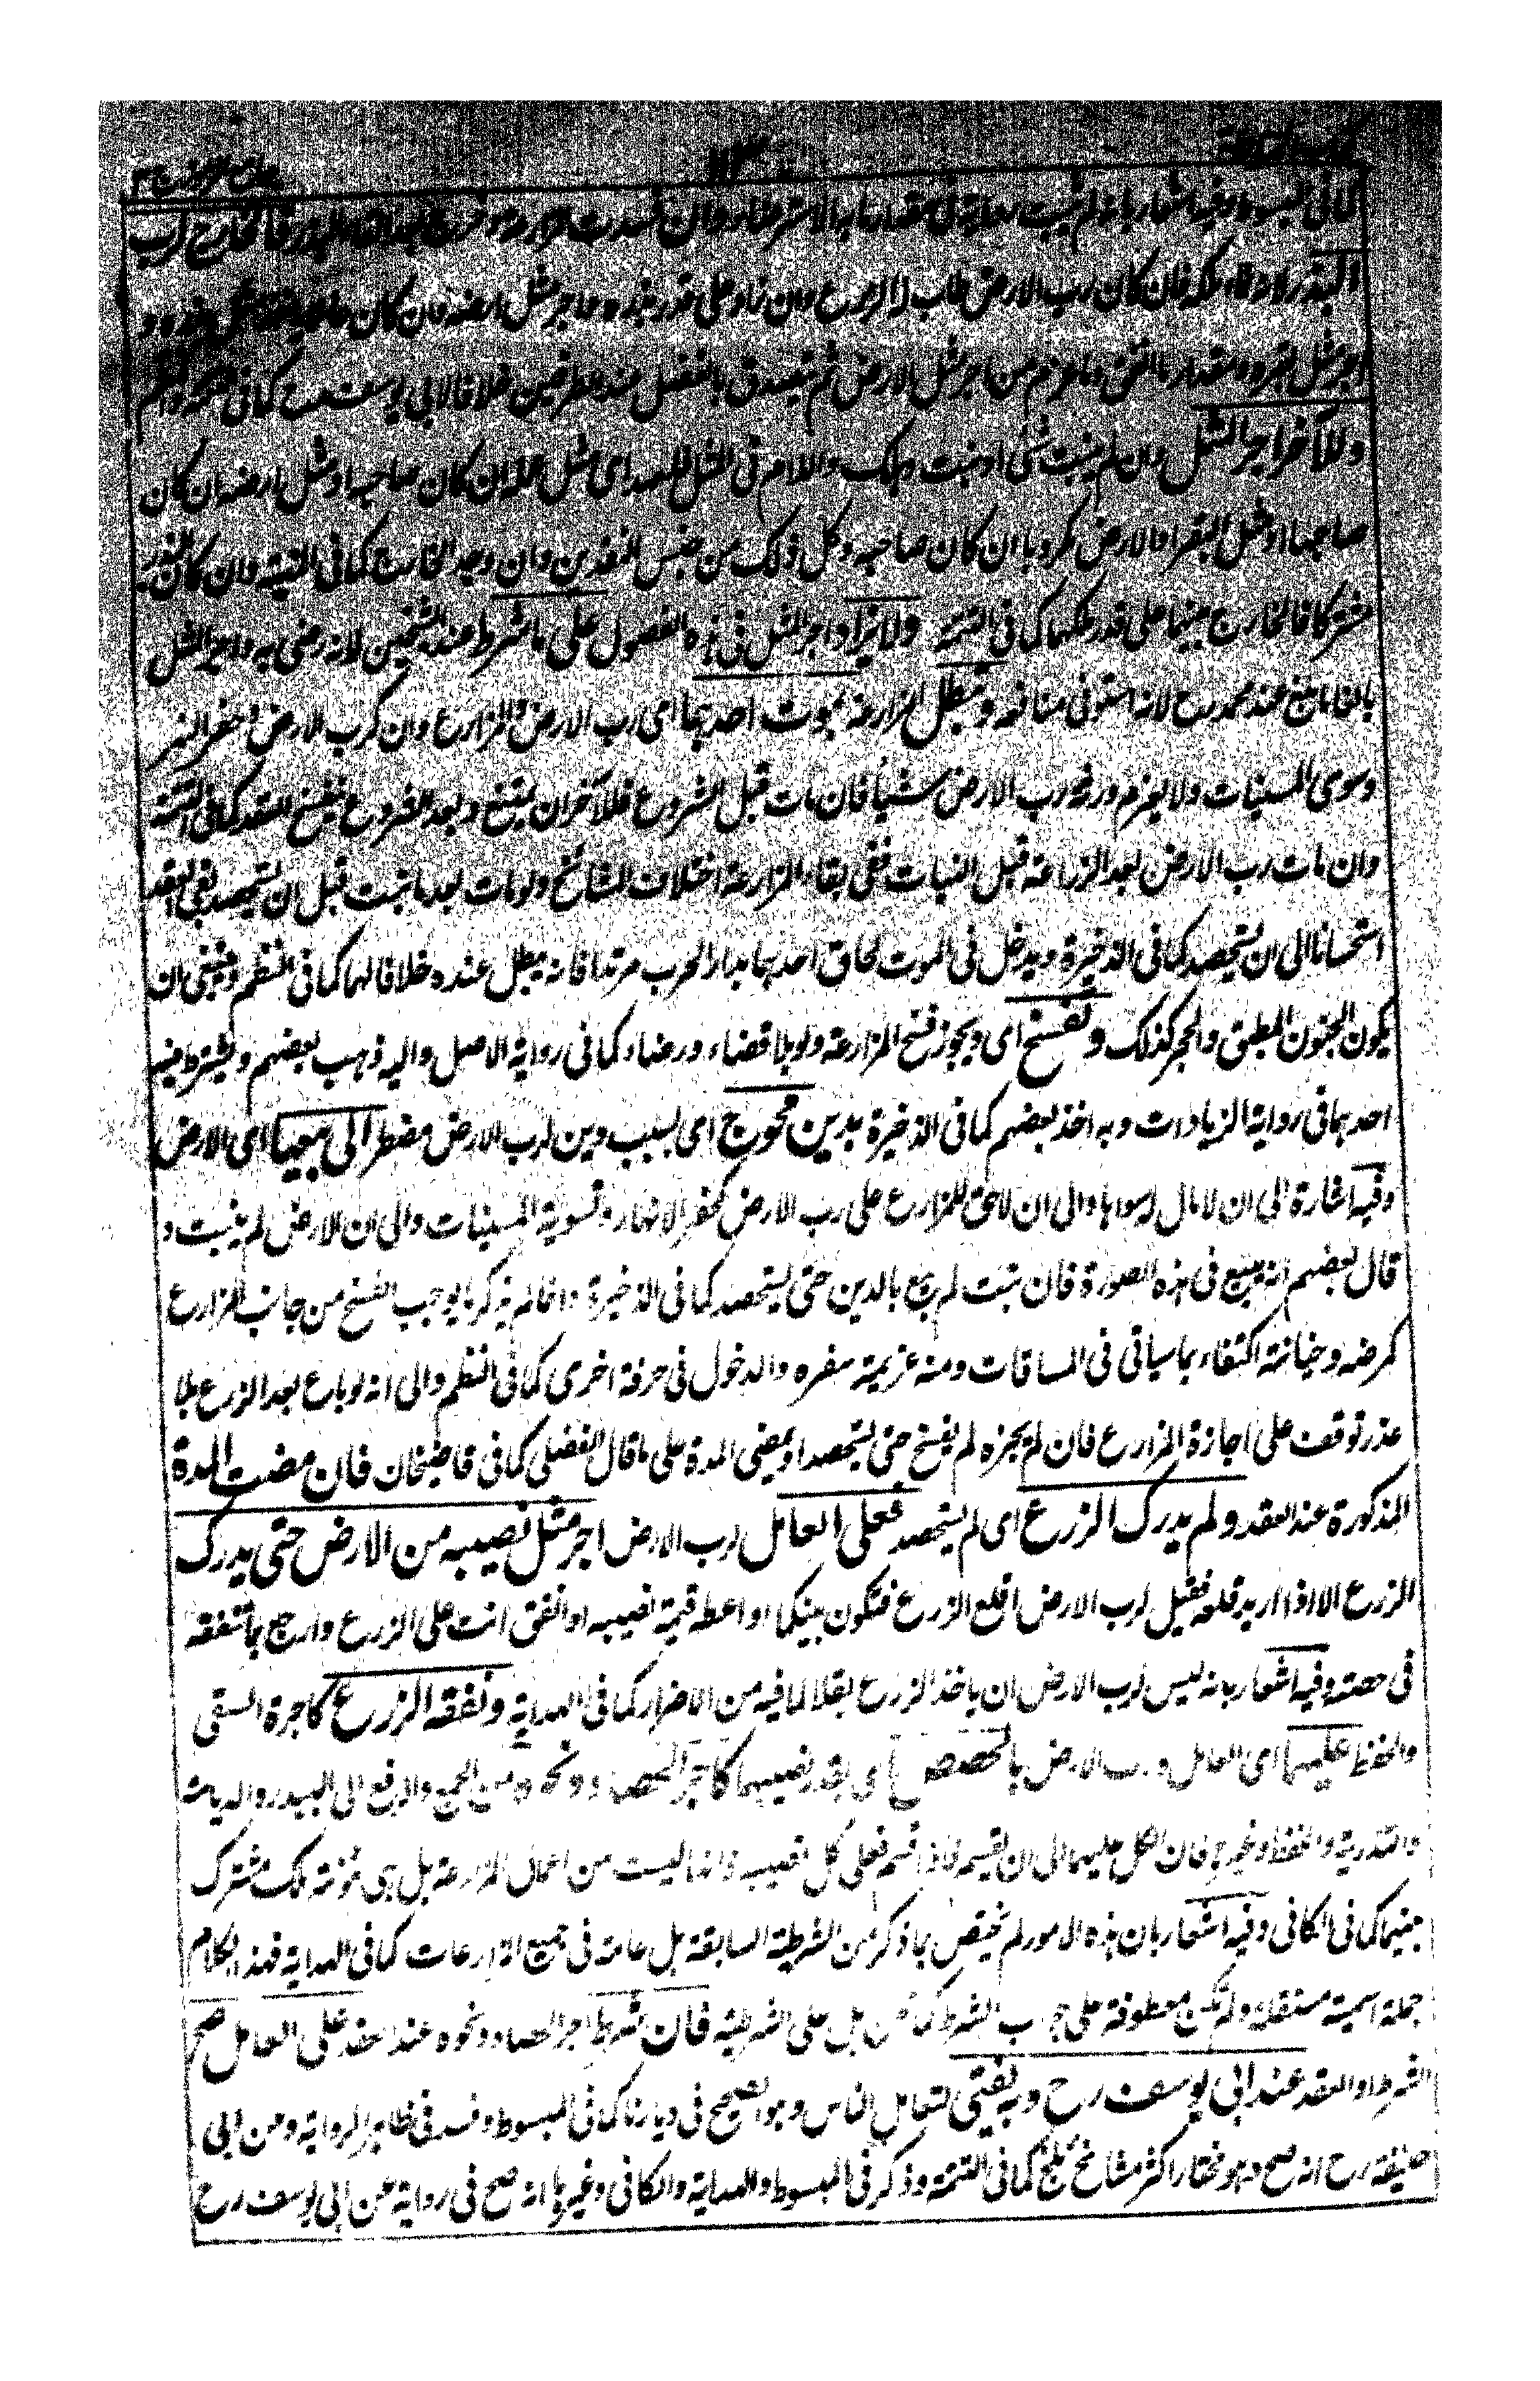 كما فى المبسوط وفيه اشعار بانه لم يثبت رواية فى مقدار ما به الاشتراط وان فسدت المزارعة فالخارج لرب
البذر لانه نماء ملكه فان كان رب الارض طاب له الزرع وان زاد على قدر بذره واجر مثل ارضه وان كان
اجر مثل بقره ومقدار ما انفق وما غرم من اجر مثل الارض ثم يتصدق بالفضل عند الطرفين خلافا لابى يوسف رح كما فى
وللآخر اجر المثل وان لم ينبت شئ او نبت وهلك واللام فى المثل للعهد اى مثل عمله ان كان صاحبه او مثل ارضه ان كان
صاحبها او مثل البقر او الارض مكروبا ان كان صاحبه وكل ذلك من جنس النقدين وان وجد الخارج كما فى التتمة وان كان البذر
مشتركا فالخارج بينهما على قدر ملكهما كما فى التتمة ولا يزاد اجر المثل فى هذه الفصول على ما شرط عند الشيخين لانه رضى به واجر المثل
بالغا ما بلغ عند محمد رح لانه استوفى منافعه وتبطل المزارعة بموت احدهما اى رب الارض والمزارع وان كرب الارض وحفر النهر
وسوى المسنيات ولا يغرم ورثة رب الارض شيئا فان مات قبل الشروع فللآخر ان يمتنع وبعد الشروع ينفسخ العقد كما فى التتمة
وان مات رب الارض بعد الزراعة قبل النبات ففى بقاء المزارعة اختلاف المشائخ ولو مات بعد ما نبت قبل ان يستحصد بقى العقد
استحسانا الى ان يستحصد كما فى الذخيرة ويدخل فى الموت لحاق احدهما بدار الحرب مرتدا فانه يبطل عنده خلافا لهما كما فى النظم وينبغى ان
يكون الجنون المطبق والحجر كذلك وتفسخ اى ويجوز فسخ المزارعة ولو بلا قضاء ورضاء كما فى رواية الاصل واليه ذهب بعضهم ويشترط فيه
احدهما فى رواية الزيادات وبه اخذ بعضهم كما فى الذخيرة بدين محوج اى بسبب دين لرب الارض مضطر الى بيعها اى الارض
وفيه اشارة الى ان لا مال له سواها والى ان لا حق للمزارع على رب الارض كحفر الانهار وتسوية المسنيات والى ان الارض لم ينبت و
قال بعضهم انه يبيع فى هذه الصورة فان نبت لم يبع بالدين حتى يستحصد كما فى الذخيرة وانما لم يذكر ما يوجب الفسخ من جانب المزارع
كمرضه وخيانته اكتفاء بما سياتى فى المساقات ومنه عزيمة سفره والدخول فى حرفة اخرى كما فى النظم والى انه لو باع بعد الزرع بلا
عذر توقف على اجازة المزارع فان لم يجزه لم يفسخ حتى يستحصد او يمضى المدة على ما قال الفضلى كما فى قاضيخان فان مضت المدة
المذكورة عند العقد ولم يدرك الزرع اى لم يستحصد فعلى العامل لرب الارض اجر مثل نصيبه من الارض حتى يدرك
الزرع الا اذا اريد قلعه فقيل لرب الارض اقلع الزرع فتكون بينكما او اعطه قيمة نصيبه او انفق انت على الزرع وارجع بما تنفقه
فى حصته وفيه اشعار بانه ليس لرب الارض ان ياخذ الزرع بقلا لما فيه من الاضرار كما فى الهداية ونفقة الزرع كاجرة السقى
والحفظ عليهما اى العامل ورب الارض بالحصص اى بقدر نصيبهما كاجر الحصاد ونحوه من الجمع والرفع الى البيدر والدياسة
والتذرية والحفظ وغيرها فان الكل عليهما الى ان يقسم فاذا قسم فعلى كل نصيبه فانها ليست من اعمال المزارعة بل هى مؤنة ملك مشترك
بينهما كما فى الكافى وفيه اشعار بان هذه الامور لم يختص بما ذكر من الشرطية السابقة بل عامة فى جميع المزارعات كما فى الهداية فهذا الكلام
جملة اسمية مستقلة ولم تكن معطوفة على جواب الشرط كما ظن بل على الشرطية فان شرط اجر الحصاد ونحوه عند العقد على العامل صح
الشرط والعقد عند ابى يوسف رح وبه يفتى لتعامل الناس وهو الصحيح فى ديارنا كما فى المبسوط وفسد فى ظاهر الرواية وعن ابى
حنيفة رح انه صح وهو مختار اكثر مشائخ بلخ كما فى التتمة وذكر فى المبسوط والهداية والكافى وغيرها انه صح فى رواية عن ابى يوسف رح